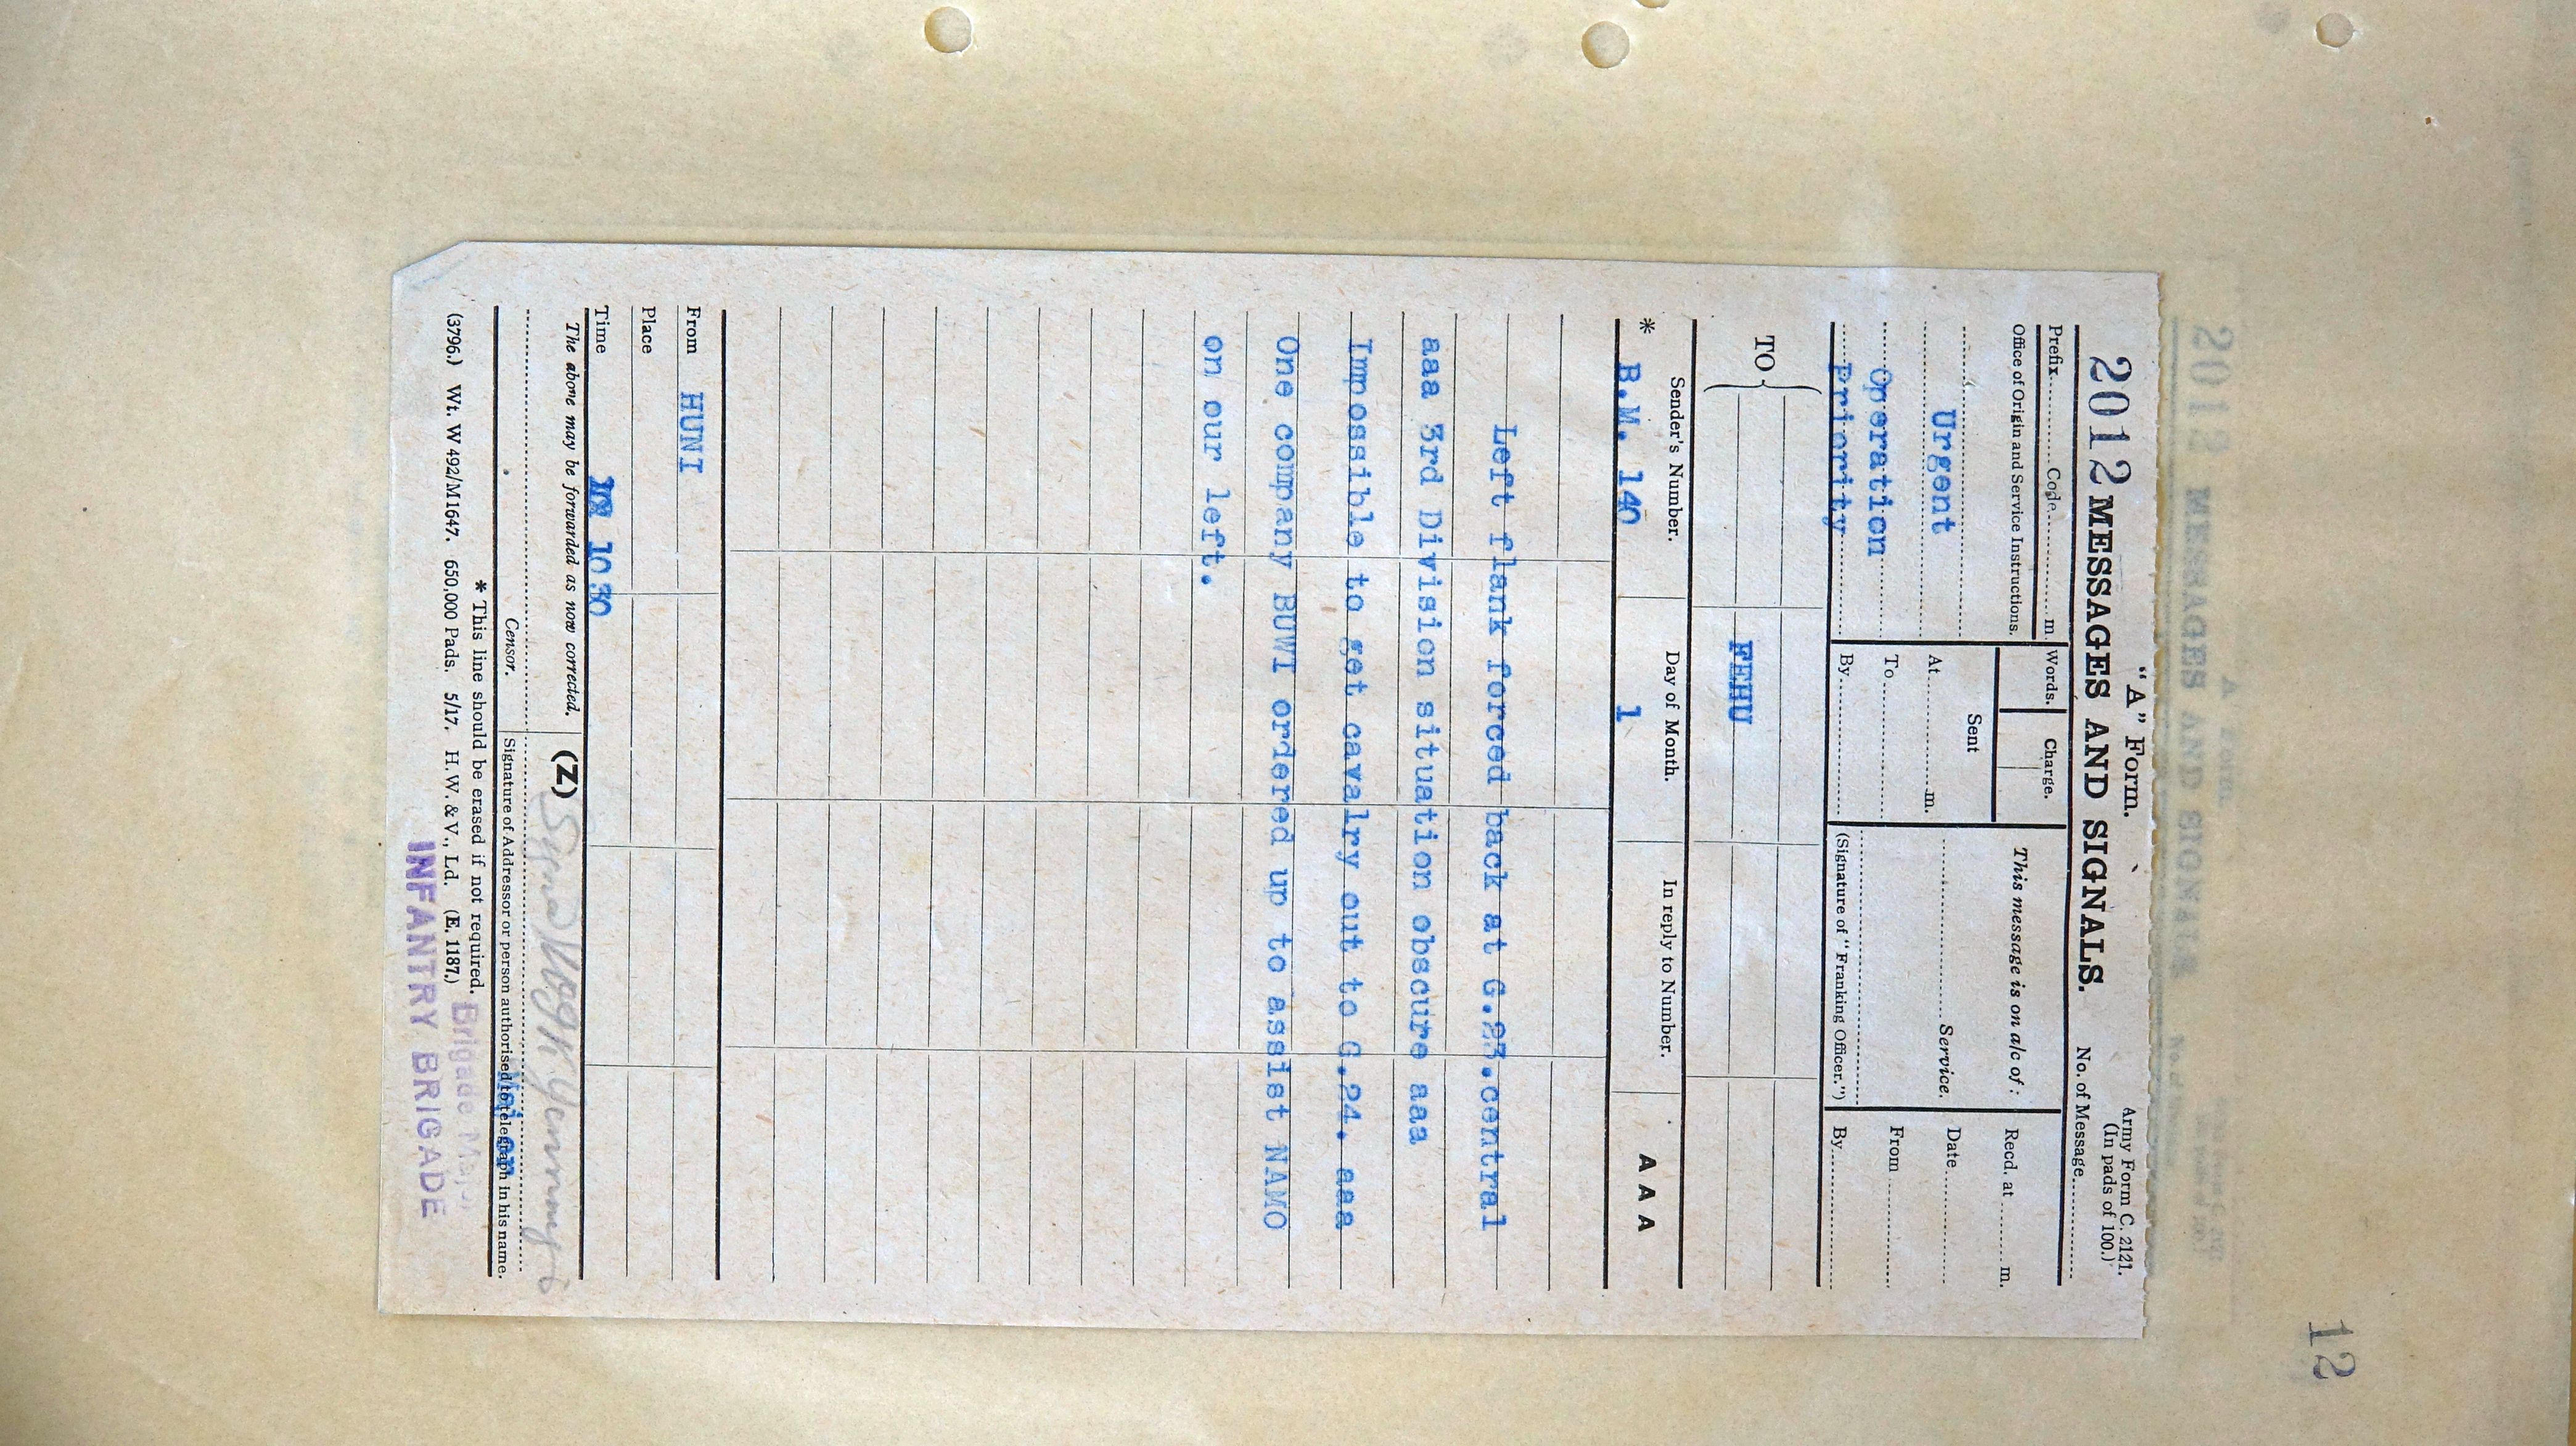 12
"A" Form.
Army Form C. 2121.
(In pads of 100.)
2012 MESSAGES AND SIGNALS. No. of Message
Prefix Code m. Words. Charge. This message is on a/c of : Recd. at m.
Office of Origin and Service Instructions.
Sent Service. Date
Urgent At m. From
Operation To
Priority By (Signature of "Franking Officer.") By
TO FEHU
Sender's Number. Day of Month. In reply to Number. A A A
* B.M. 140 1
Left flank forced back at G.23.central
aaa 3rd Division situation obscure aaa
Impossible to get cavalry out to G.24. aaa
One company BUWI ordered up to assist NAMO
on our left.
From HUNI
Place
Time 10 30
The above may be forwarded as now corrected. (Z)
Censor. Signature of Addressor or person authorised to telegraph in his name.
* This line should be erased if not required.
Brigade
(3796.) Wt. W 492/M1647. 650,000 Pads. 5/17. H. W. & V., Ld. (E. 1187.)
INFANTRY BRIGADE